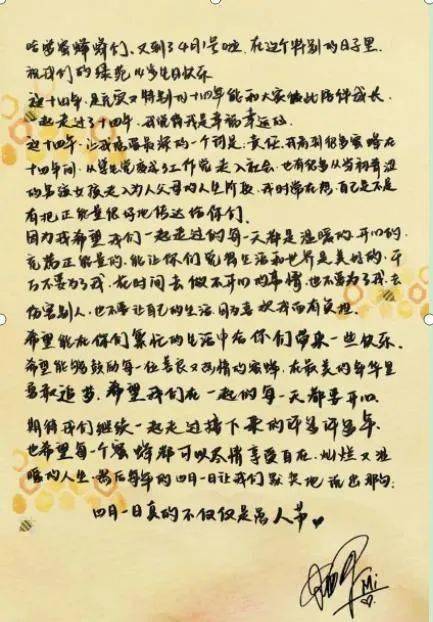 哈喽蜜蜂蜂们、又到了4月1号啦、在这个特别的日子里、
祝我们的绿苑14岁生日快乐
这十四年，是充实又特别的十四年能和大家彼此陪伴成长、
一起走过了十四年，我觉得我是幸福幸运的、
这十四年、让我感受最深的一个词是：责任、我看到很多蜜蜂在
十四年间，从学生党变成了工作党走入社会、也有很多从当初青涩
的男孩女孩走入为人父母的人生阶段，我时常在想，自己是不是
有把正能量很好地传达给你们。
因为我希望我们一起走过的每一天都是温暖的、开心的、
充满正能量的，能让你们觉得生活和世界是美好的，千
万不要为了我、花时间去做不开心的事情，也不要为了我、去
伤害别人、也不要让自己的生活因为喜欢我而有负担。
希望能在你们繁忙的生活中给你们带来一些快乐。
希望能够鼓励每一位善良又热情的蜜蜂，在最美的年华里
勇敢追梦、希望我们在一起的每一天都要开心
期待我们继续一起走过接下来的许多许多年
也希望每一个蜜蜂都可以尽情享受自在、灿烂又温
暖的人生，然后每年的四月一日让我们默契地说出那句：
四月一日真的不仅仅是愚人节
Mi